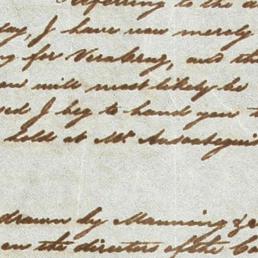 Referring to the
day, I have now merely
ing for Veracruz, and th
an will most likely be
sed I beg to hand you
held at Mr.
drawn by Manning &
on the directors of the Co